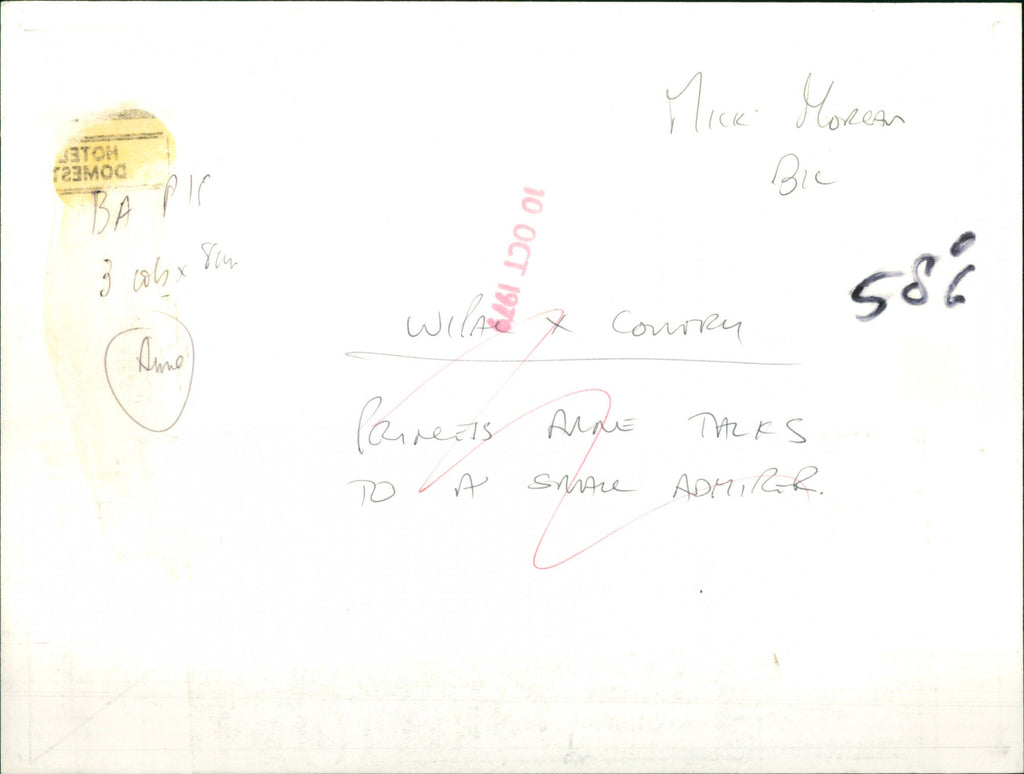 MICK MORGAN
HOTEL
DOMEST
BA PIC
10 OCT 1979
3 cols x 8cm
586
Anne
PRINCESS ANNE TALKS
TO A SMALL ADMIRER.